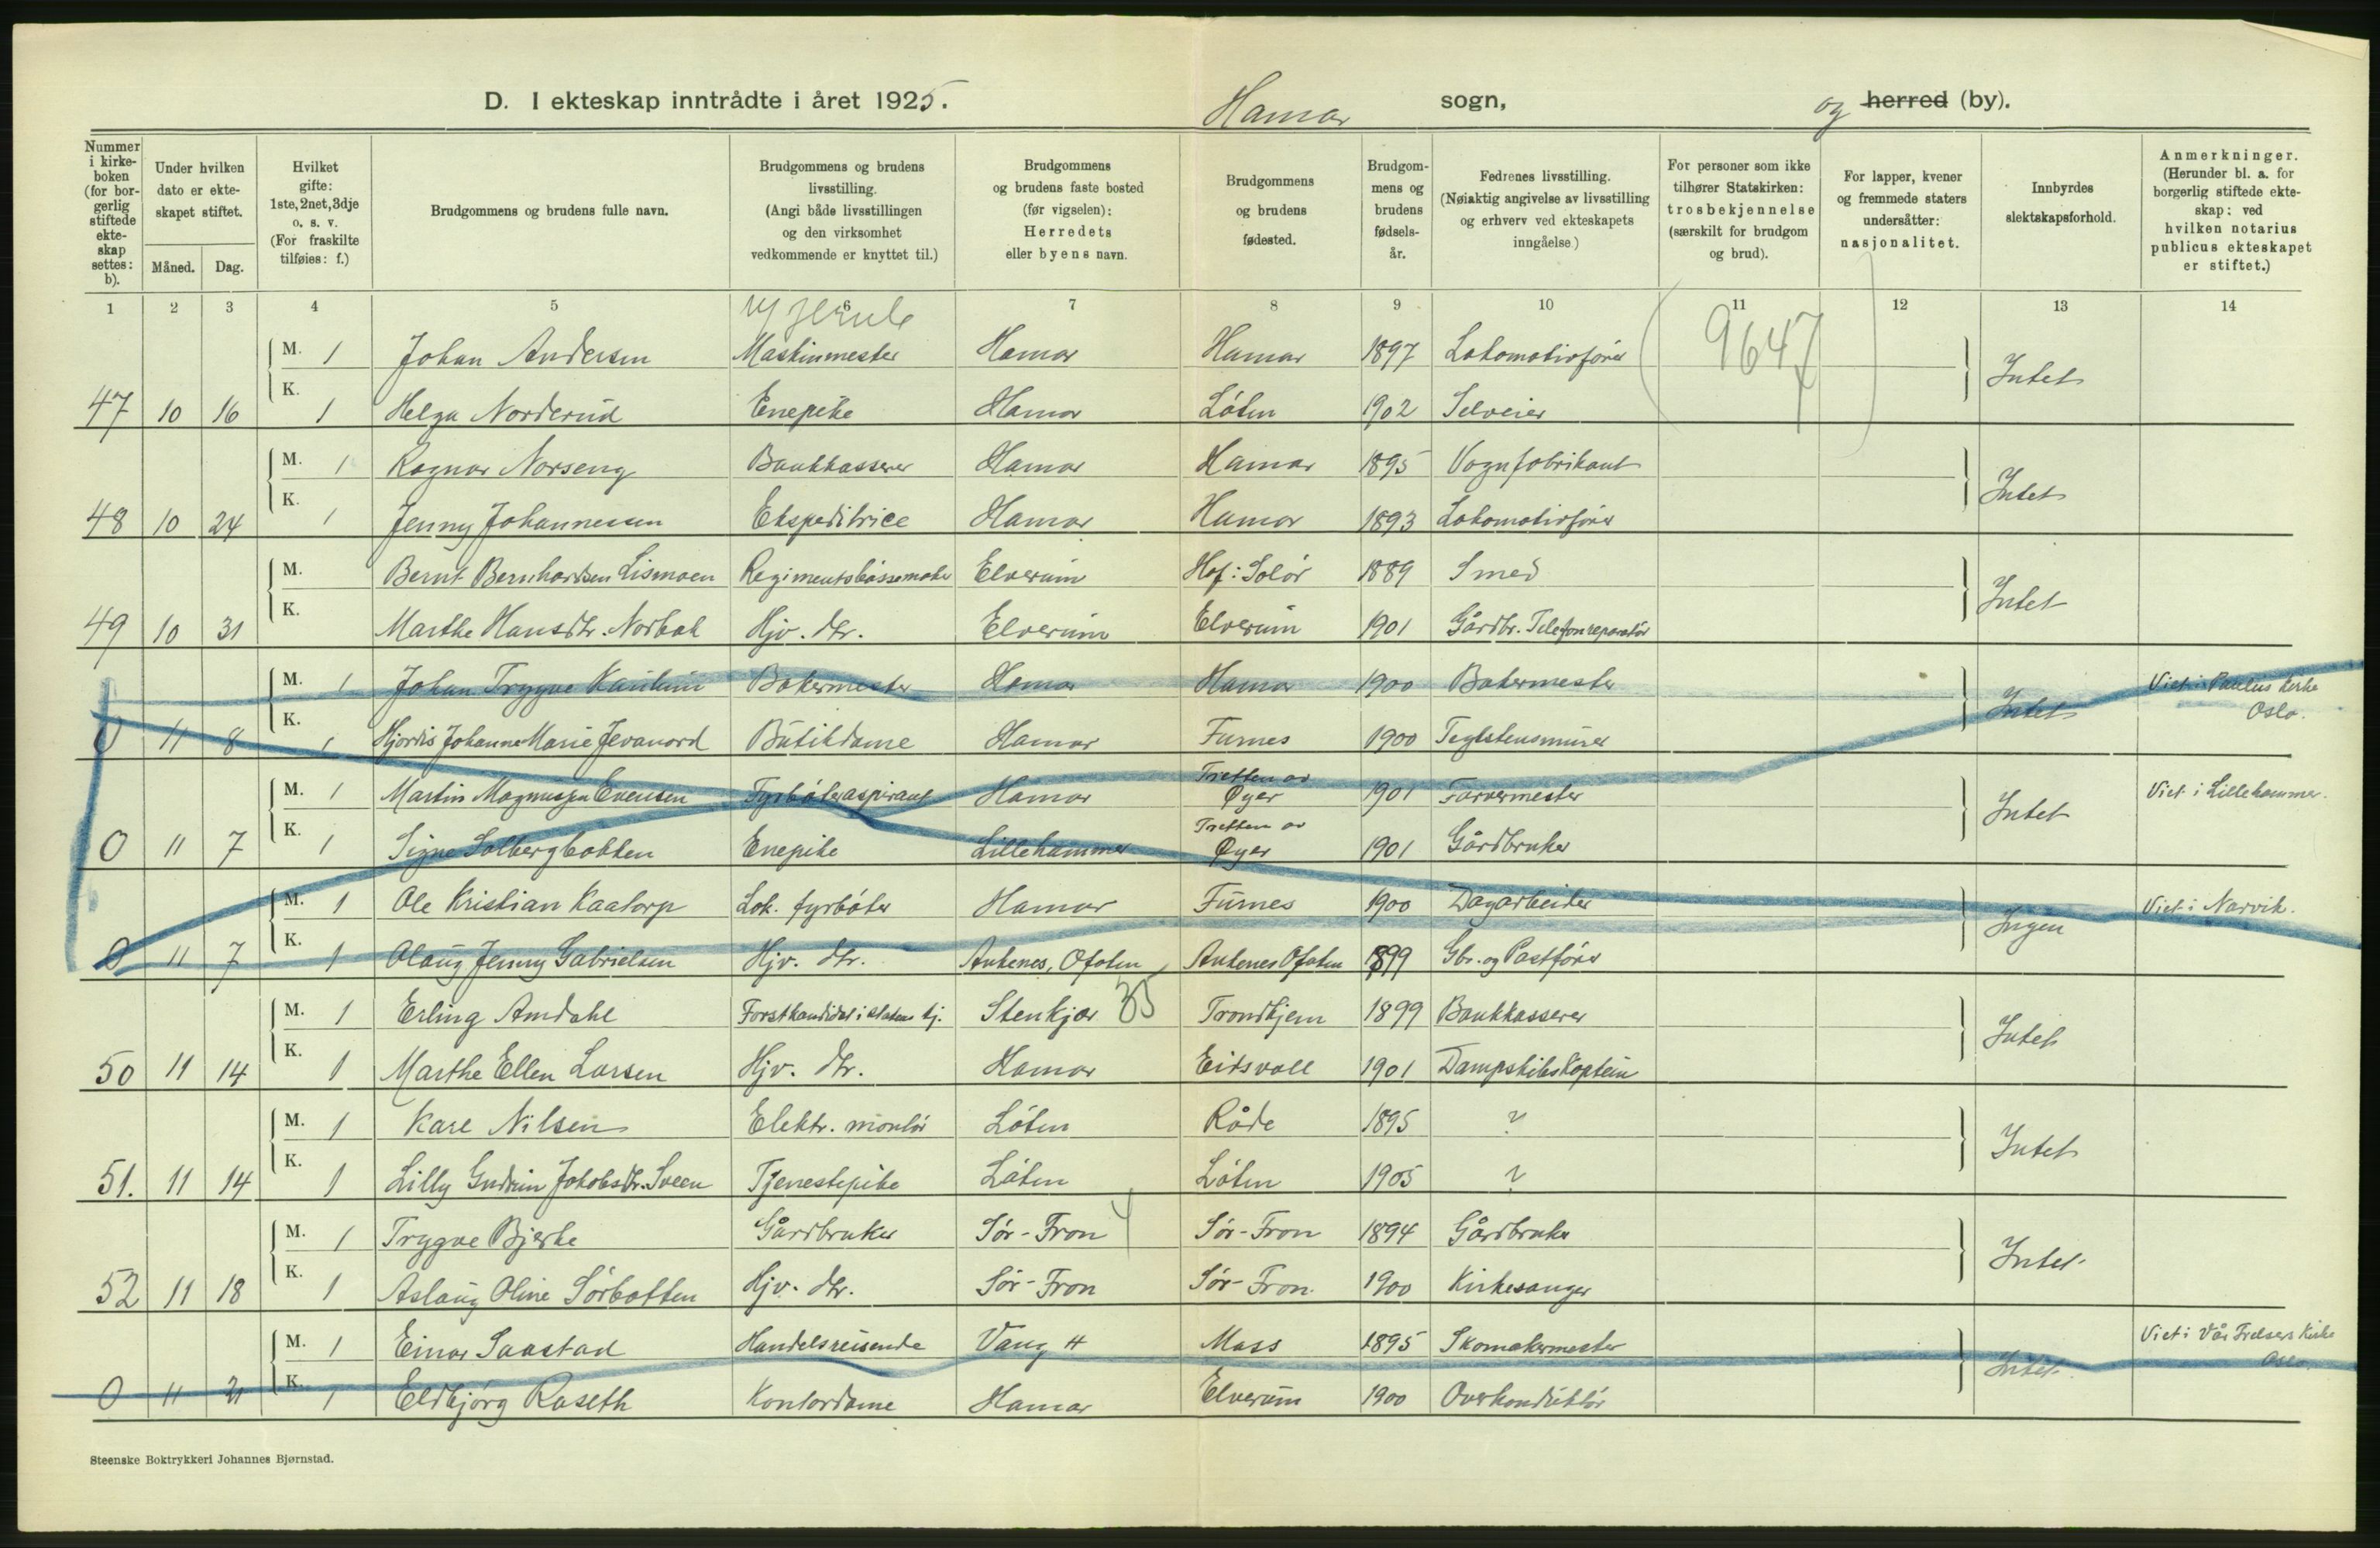 D. I ekteskap inntrådte i året 1925. Hamar sogn, og herred (by).
Nummer i kirke-boken (for bor-gerlig stiftede ekte-skap settes: b).
Under hvilken dato er ekte-skapet stiftet.
Måned. Dag.
Hvilket gifte: 1ste, 2net, 3dje o. s. v. (For fraskilte tilføies: f.)
Brudgommens og brudens fulle navn.
Brudgommens og brudens livsstilling. (Angi både livsstillingen og den virksomhet vedkommende er knyttet til.)
Brudgommens og brudens faste bosted (før vigselen): Herredets eller byens navn.
Brudgommens og brudens fødested.
Brudgom-mens og brudens fødsels-år.
Fedrenes livsstilling. (Nøiaktig angivelse av livsstilling og erhverv ved ekteskapets inngåelse.)
For personer som ikke tilhører Statskirken: trosbekjennelse (særskilt for brudgom og brud).
For lapper, kvener og fremmede staters undersåtter: nasjonalitet.
Innbyrdes slektskapsforhold.
Anmerkninger. (Herunder bl. a. for borgerlig stiftede ekte-skap: ved hvilken notarius publicus ekteskapet er stiftet.)
1 2 3 4 5 6 7 8 9 10 11 12 13 14
M. 1 Johan Andersen Maskinmester Hamar Hamar 1897 Lokomotivfører (9647) Intet
47 10 16 K. 1 Helga Norderud Enepike Hamar Løten 1902 Selveier
M. 1 Ragnar Norseng Bankkasserer Hamar Hamar 1895 Vognfabrikant Intet
48 10 24 K. 1 Jenny Johannessen Ekspeditrice Hamar Hamar 1893 Lokomotivfører
M. Bernt Bernhardsen Lismoen Regimentsbøssemaker Elverum Hof: Solør 1889 Smed Intet
49 10 31 K. Marthe Hansdtr. Norbak Hjv. dtr. Elverum Elverum 1901 Gårdbr. Telefonreparatør
M. 1 Johan Trygve Kaulum Bakermester Hamar Hamar 1900 Bakermester Intet Viet i Paulus Kirke Oslo.
0 11 8 K. 1 Hjørdis Johanne Marie Jevanord Butikdame Hamar Furnes 1900 Teglstensmurer
M. 1 Martin Magnussen Evensen Fyrbøteraspirant Hamar Tretten av Øyer 1901 Farvermester Intet Viet i Lillehammer.
0 11 7 K. 1 Signe Solbergbakken Enepike Lillehammer Tretten av Øyer 1901 Gårdbruker
M. 1 Ole Kristian Kaatorp Lok. fyrbøter Hamar Furnes 1900 Dagarbeider Ingen Viet i Narvik.
0 11 7 K. 1 Olaug Jenny Gabrielsen Hjv. dtr. Ankenes, Ofoten Ankenes Ofoten 1899 Gbr. og Postfører
M. 1 Erling Amdahl Forstkandidat i statens tj. Stenkjær 35 Trondhjem 1899 Bankkasserer Intet
50 11 14 K. 1 Marthe Ellen Larsen Hjv. dtr. Hamar Eidsvoll 1901 Dampskibskaptein
M. 1 Kåre Nilsen Elektr. montør Løten Råde 1895 ? Intet
51. 11 14 K. 1 Lilly Gudrun Jakobsdtr. Sveen Tjenestepike Løten Løten 1905 ?
M. 1 Trygve Bjerke Gårdbruker Sør-Fron 4 Sør-Fron 1894 Gårdbruker Intet
52 11 18 K. 1 Aslaug Oline Sørbotten Hjv. dtr. Sør-Fron Sør-Fron. 1900 Kirkesanger
M. 1 Einar Saastad Handelsreisende Vang H Moss 1895 Skomakermester Intet. Viet i Vår Frelsers Kirke Oslo.
0 11 21 K. 1 Eldbjørg Raseth Kontordame Hamar Elverum 1900 Overkonduktør
Steenske Boktrykkeri Johannes Bjørnstad.